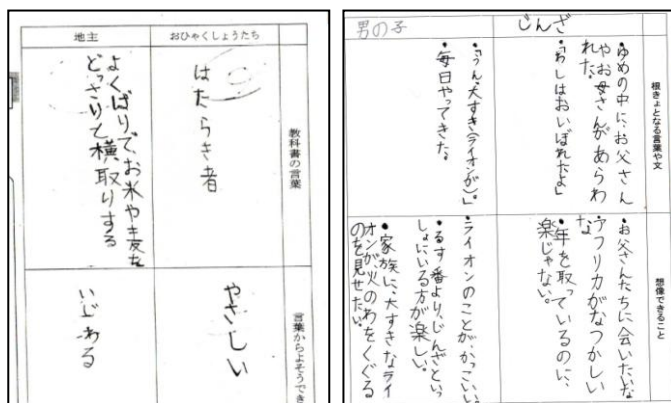 おひゃくしょうたち
地主
教科書の言葉
はたらき者
よくばりで、お米や麦を
どっさりて横取りする
言葉からよそうでき
やさしい
いじわる
じんざ
男の子
根きょとなる言葉や文
・ゆめの中に、お父さん
やお母さんがあらわ
れた。
・「わしはおいぼれたよ」
・「うん、大すき(ライオンが)。」
・毎日やってきた。
想像できること
・お父さんたちに会いたいな
アフリカがなつかしい
な
・年を取っているのに、
楽じゃない。
・ライオンのことが、かっこいい。
・るす番より、じんざといっ
しょにいる方が楽しい。
・家族に、大すきなライ
オンが火のわをくぐる
のを見せたい。